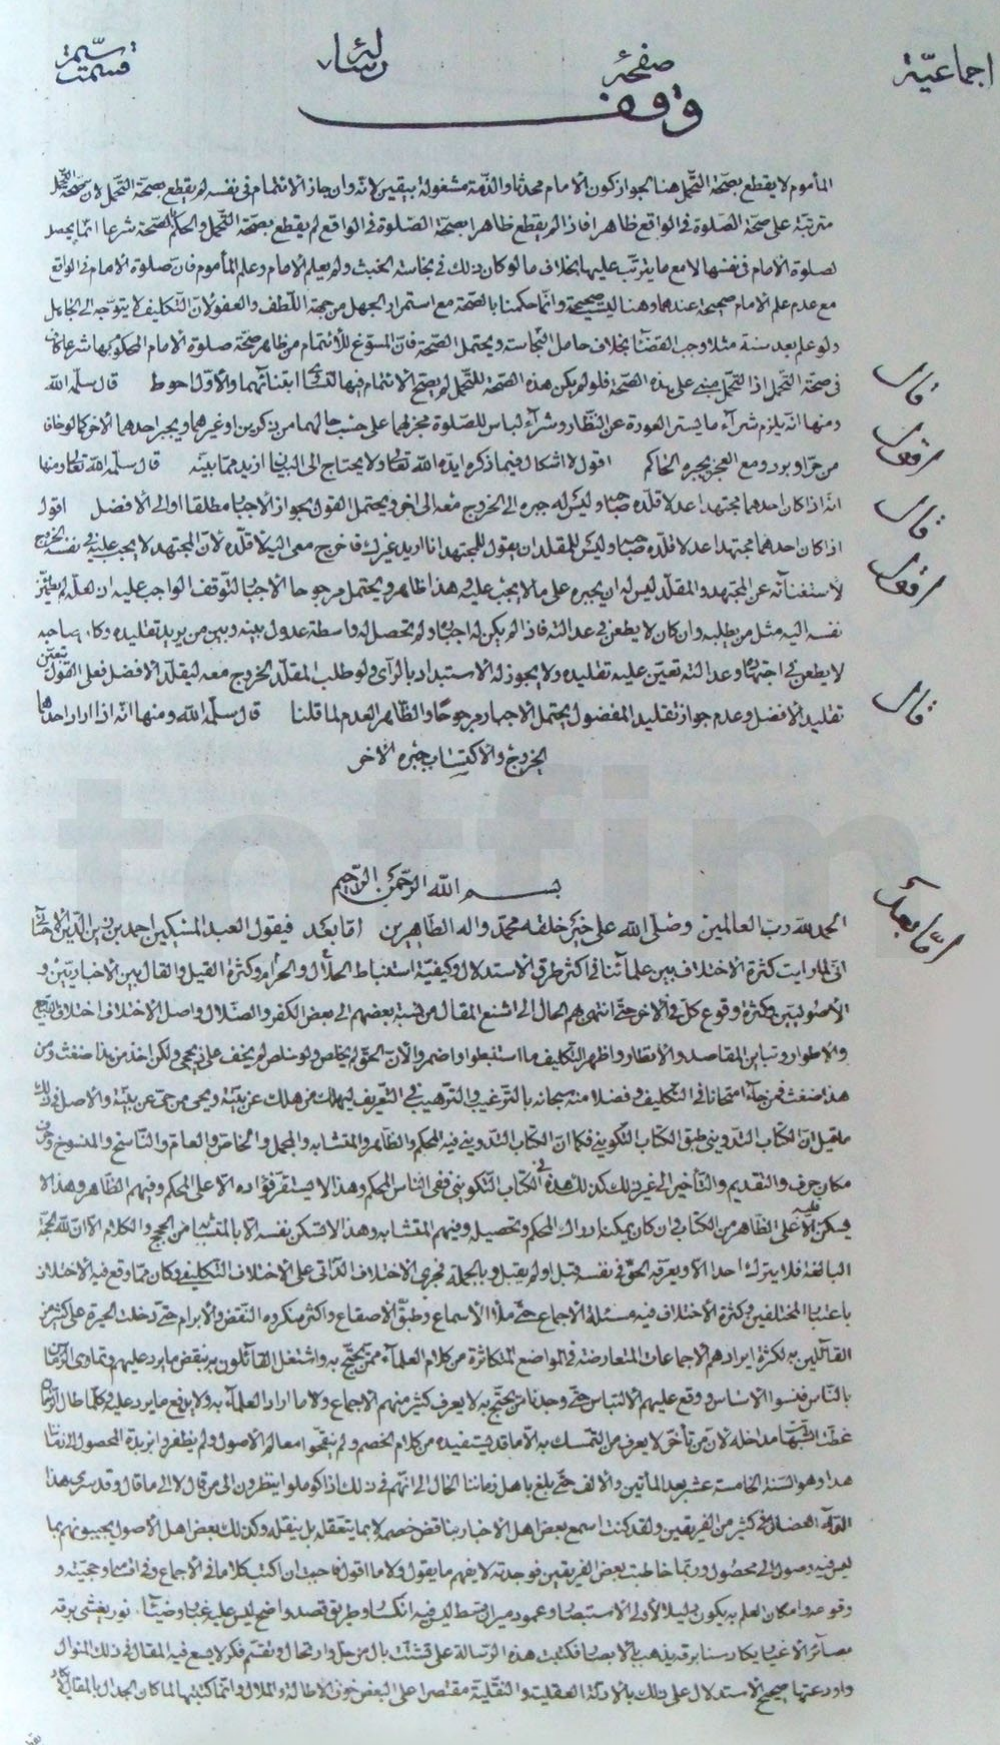 اجماعيّة صفحۀ رسالۀ قسمت سيّم
وقف
المأموم لا يقطع بصحّة التحمّل هنا لجواز كون الامام محدثا والذّمة مشغولة بيقين لانّه وان جاز الائتمام فى نفسه لم يقطع بصحّة التحمّل لان صحّة التحمّل
مترتبة على صحّة الصّلوة فى الواقع ظاهرا فاذا لم يقطع ظاهرا بصحّة الصّلوة فى الواقع لم يقطع بصحّة التحمّل والحكم بالصّحة شرعا انّما يحصل
لصلوة الامام فى نفسها لا مع ما يترتّب عليها بخلاف ما لو كان ذلك فى نجاسة الخبث ولم يعلم الامام وعلم المأموم فانّ صلوة الامام فى الواقع
مع عدم علم الامام صحيحة عندهما وهنا ليست صحيحة وانّما حكمنا بالصّحة مع استمرار الجهل من جهة اللّطف والعفو لانّ التّكليف لا يتوجّه الى الجاهل
ولو علم بعد سنة مثلا وجب القضاء بخلاف حامل النّجاسة ويحتمل الصّحة فانّ المسوّغ للائتمام من ظاهر صحّة صلوة الامام المحكوم بها شرعا كان
فى صحّة التحمّل اذا التحمّل مبنى على هذه الصّحة فلو لم يكن هذه الصّحة للتحمّل لم يصحّ الائتمام فيها لتساوى ابتنائهما والاوّل احوط قال سلّمه الله
قال
ومنها انّه يلزم شرآء ما يستر العورة عن النّظار وشرآء لباس للصّلوة مجز لهما على حسب حالهما من ذكرين او غيرهما ويجبر احدهما الاخر كما لو خافا
من حرّ او برد ومع العجز يجبره الحاكم اقول لا اشكال فيما ذكره ايّده الله تعالى ولا يحتاج الى البيان ازيد ممّا بيّنه قال سلّمه الله تعالى ومنها
اقول
انّه اذا كان احدهما مجتهدا عدلا قلّده صاحبه وليس له جبره الى الخروج معه الى اخر ويحتمل القول بجواز الاجبار مطلقا او الى الافضل اقول
قال
اذا كان احدهما مجتهدا عدلا قلّده صاحبه وليس للمقلد ان يقول للمجتهد انا اريد غيرك فاخرج معى اليه لاقلّده لانّ المجتهد لا يجب عليه فى نفسه الخروج
اقول
لاستغنائه عن المجتهد والمقلّد ليس له ان يجبره على ما لا يجب عليه هذا ظاهر ويحتمل مرجوحا الاجبار لتوقف الواجب عليه اذ لعلّه لم يطمئنّ
نفسه اليه مثل من يطلبه وان كان لا يطعن فى عدالته فاذا لم يكن له اجباره ولم تحصل له واسطة عدول بينه وبين من يريد تقليده وكان صاحبه
لا يطعن فى اجتهاده وعدالته تعيّن عليه تقليده ولا يجوز له الاستبداد بالرأى ولو طلب المقلّد الخروج معه ليقلّد الافضل فعلى القول بتعيّن
تقليد الافضل وعدم جواز تقليد المفضول يحتمل الاجبار مرجوحًا والظّاهر العدم لما قلنا قال سلّمه الله ومنها انّه اذا اراد احدهما
قال
الخروج والاكتساب جبره الاخر
بسم الله الرّحمن الرّحيم
الحمد لله ربّ العالمين وصلّى الله على خير خلقه محمّد واله الطّاهرين امّا بعد فيقول العبد المسكين احمد بن زين الدّين الاحسائى
امّا بعد
انّى لمّا رايت كثرة الاختلاف بين علمائنا فى اكثر طرق الاستدلال وكيفيّة استنباط الحلال والحرام وكثرة القيل والقال بين الاخباريّين و
الاصوليّين وكثرة وقوع كلّ فى الاخر حتّى انتهى بهم الحال الى اشنع المقال من نسبة بعضهم الى بعض الكفر والضّلال واصل الاختلاف اختلاف
والاطوار وتباين المقاصد والانظار واظهر التّكليف ما استبطنوا واضمروا لانّ الحقّ لم يخلص ولو خلص لم يخف على ذى حجى ولكن اخذ من هذا ضغث ومن
هذا ضغث فمزجا امتحانا فى التّكليف وفضلا منه سبحانه بالتّرغيب والتّرهيب فى التّعريف ليهلك من هلك عن بيّنة ويحيى من حىّ عن بيّنة والاصل فى ذلك
ما قيل انّ الكتاب التّدوينى طبق الكتاب التّكوينى فكما انّ الكتاب التّدوينى فيه المحكم والظّاهر والمتشابه والمجمل والخاصّ والعامّ والنّاسخ والمنسوخ وحرف
مكان حرف والتقديم والتّأخير الى غير ذلك كذلك هذه فى الكتاب التّكوينى ففى النّاس المحكم وهذا لا يستقرّ فؤاده الّا على المحكم وفيهم الظّاهر وهذا لا
يسكن قلبه الّا على الظّاهر من الكتاب وان كان يمكنه ادراك المحكم وتحصيله وفيهم المتشابه وهذا لا تسكن نفسه الّا بالمتشابه من الحجج والكلام الّا انّ لله الحجّة
البالغة فلا يترك احدا الّا ويعرفه الحقّ فى نفسه قبل او لم يقبل وبالجملة فجرى الاختلاف الذّاتى على الاختلاف التّكليفى وكان ممّا وقع فيه الاختلاف
باعتبار المختلفين وكثرة الاختلاف فيه مسئلة الاجماع حتّى ملأ الاسماع وطبّق الاصقاع واكثر منكروه النّقض والابرام حتّى دخلت الحيرة على كثير من
القآئلين به لكثرة ايرادهم الاجماعات المتعارضة فى المواضع المتكاثرة من كلام العلمآء ممّن يحتجّ به واشتغل القآئلون به بنقض ما يرد عليهم وتمادى الزّمان
بالنّاس فنسوا الاساس ووقع عليهم الالتباس حتّى وجدنا من يحتجّ به لا يعرف كثير منهم الاجماع ولا ما اراد العلمآء به ولا يدفع ما يرد عليه وكلّما طال الزّمان
غطّت الشّبهات مداخله لانّ من تأخّر لا يعرف من التّمسك به الّا ما قد يستفيده من كلام الخصم ولم يفهموا معالم الاصول ولم يظفروا بزبدة المحصول الى زماننا
هذا وهو السّنة الخامسة عشر بعد المأتين والالف حتّى بلغ باهل زماننا الحال الى انّهم فى ذلك اذا كوملوا ينظرون الى من قال لا الى ما قال وقد سرى هذا
الدّآء العضال فى كثير من الفريقين ولقد كنت اسمع بعض اهل الاخبار يناقض خصمه لا بما يتعقّله بل ينقله وكذلك بعض اهل الاصول يجيبونهم بما
ليس فيه وصول الى محصول وربّما خاطبت بعض الفريقين فوجدته لا يفهم ما يقول ولا ما اقول فاحببت ان اكتب كلاما فى الاجماع وفى اقسامه وحجيّته و
وقوعه وامكان العلم به يكون دليلا لاولى الاستبصار وعمود ميزان قسط ليس فيه انكسار وطريق قصد واضح ليس عليه غبار وضيآء نور يغشى برقه
بصآئر الاغيار يكاد سنا برقه يذهب بالابصار فكتبت هذه الرّسالة على تشتّت بال من حلّ وارتحال وتقسّم فكر لا يسع فيه المقال فى ذلك المنوال
واودعتها صحيح الاستدلال على ذلك بالادلّة العقليّة والنّقليّة مقتصرا على البعض خوف الاطالة والملال وانّما كتبتها لما كان الجدال بالمقال